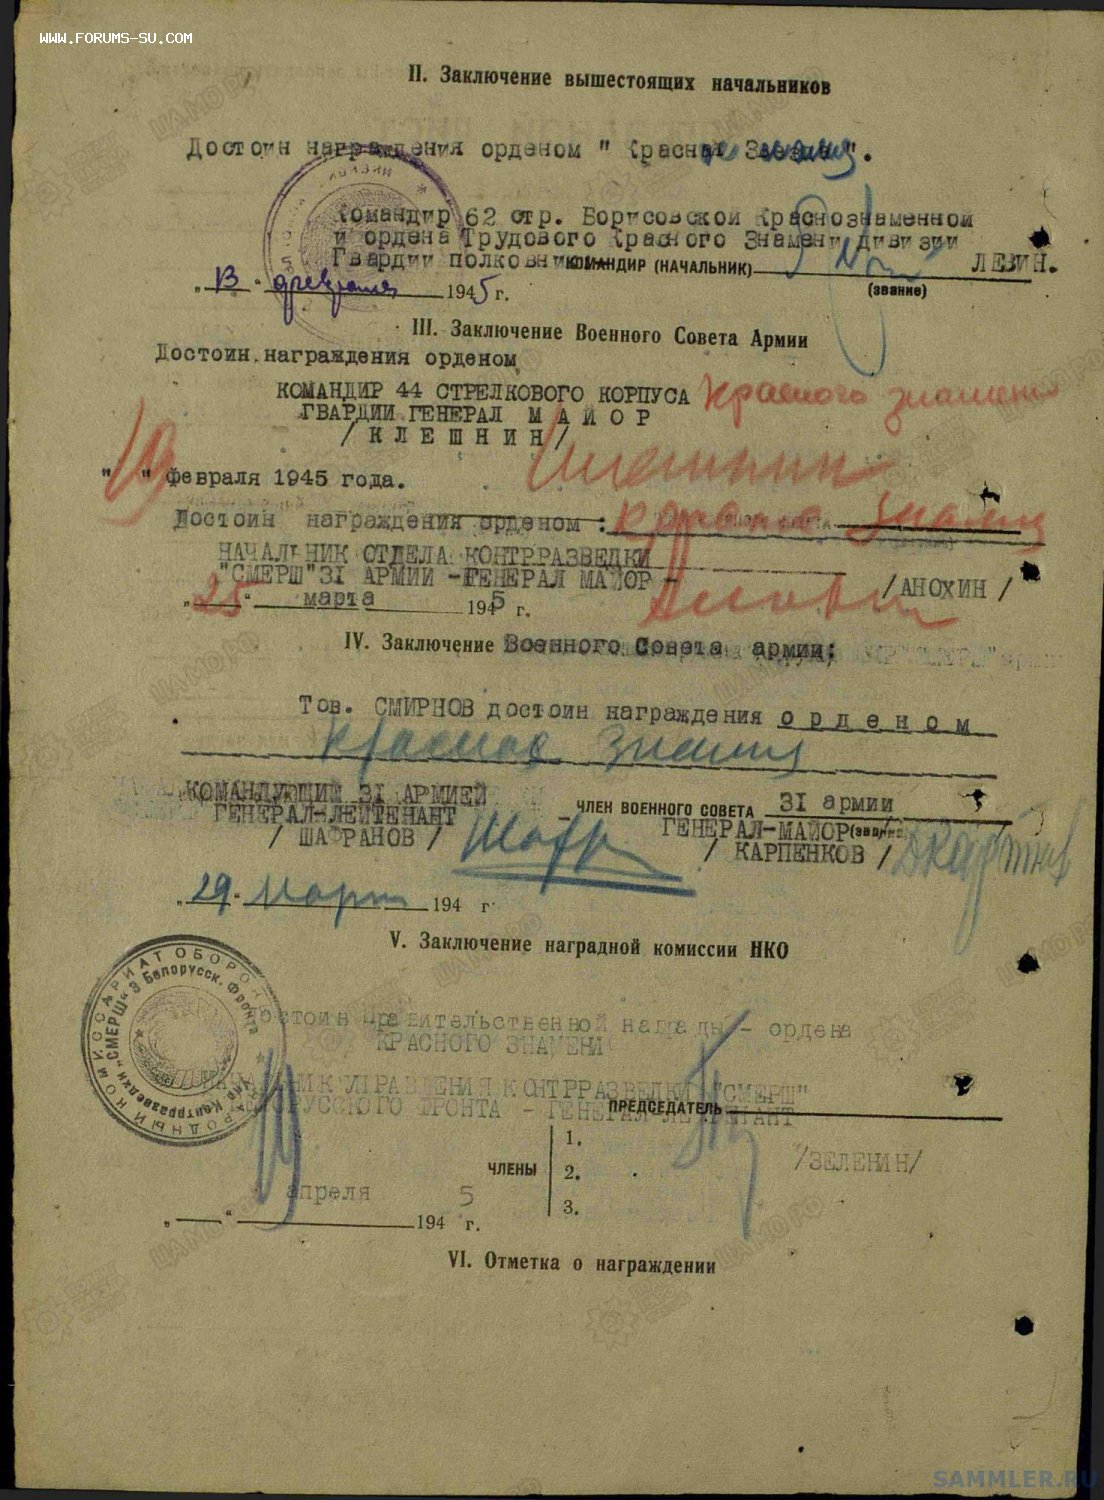 WWW.FORUMS-SU.COM
II. Заключение вышестоящих начальников
Достоин награждения орденом "Красное Знамя".
Командир 62 стр. Борисовской Краснознаменной
и ордена Трудового Красного Знамени дивизии
Гвардии полковник КОМАНДИР (НАЧАЛЬНИК) ЛЕВИН.
(звание)
„13" февраля 1945 г.
III. Заключение Военного Совета Армии
Достоин награждения орденом
Красного знамени
КОМАНДИР 44 СТРЕЛКОВОГО КОРПУСА
ГВАРДИИ ГЕНЕРАЛ МАЙОР
/КЛЕШНИН/
"19" февраля 1945 года.
Достоин награждения орденом: Красное Знамя
НАЧАЛЬНИК ОТДЕЛА КОНТРРАЗВЕДКИ
"СМЕРШ" 31 АРМИИ - ГЕНЕРАЛ МАЙОР - /АНОХИН/
„25" марта 1945 г.
IV. Заключение Военного Совета армии:
Тов. СМИРНОВ достоин награждения орденом
Красное Знамя
КОМАНДУЮЩИЙ 31 АРМИЕЙ
ГЕНЕРАЛ-ЛЕЙТЕНАНТ
/ ШАФРАНОВ /
ЧЛЕН ВОЕННОГО СОВЕТА 31 армии
ГЕНЕРАЛ-МАЙОР (звание)
/ КАРПЕНКОВ /
„29" март 194 г.
V. Заключение наградной комиссии НКО
Достоин Правительственной награды - ордена
КРАСНОГО ЗНАМЕНИ
НАЧАЛЬНИК УПРАВЛЕНИЯ КОНТРРАЗВЕДКИ "СМЕРШ"
БЕЛОРУССКОГО ФРОНТА - ГЕНЕРАЛ-ЛЕЙТЕНАНТ
ПРЕДСЕДАТЕЛЬ
/ЗЕЛЕНИН/
ЧЛЕНЫ
1.
2.
3.
апреля 1945 г.
НАРОДНЫЙ КОМИССАРИАТ ОБОРОНЫ
Упр Контрразведки „СМЕРШ" 3 Белорусск. Фронта
VI. Отметка о награждении
SAMMLER.RU